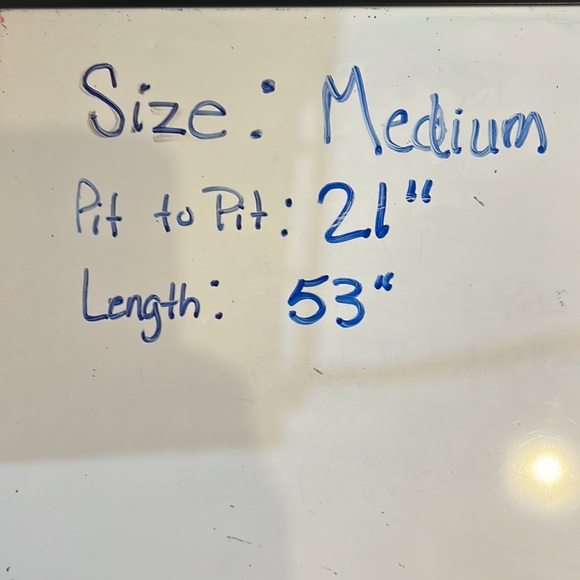 Size: Medium
Pit to Pit: 21"
Length: 53"